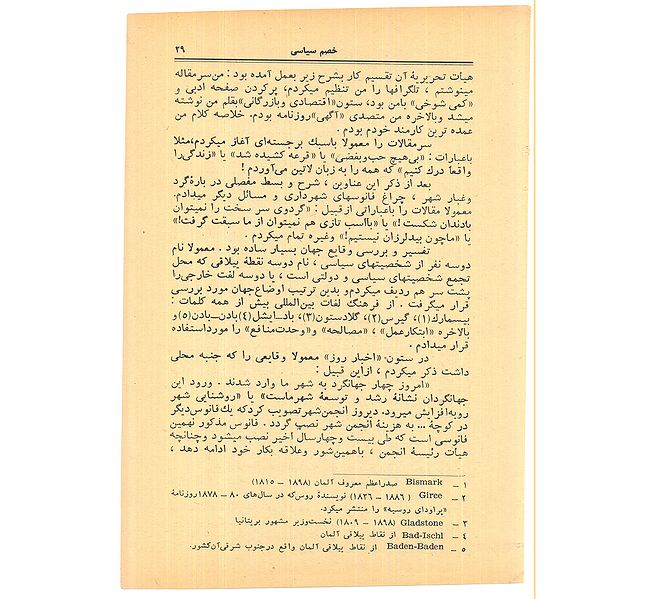 خصم سیاسی ۲۹
هیأت تحریریهٔ آن تقسیم کار بشرح زیر بعمل آمده بود : من‌سرمقاله
مینوشتم ، تلگرافها را من تنظیم میکردم، پرکردن صفحه ادبی و
«کمی شوخی» بامن بود، ستون«اقتصادی وبازرگانی»بقلم من نوشته
میشد وبالاخره من متصدی «آگهی»روزنامه بودم. خلاصه کلام من
عمده ترین کارمند خودم بودم .
سرمقالات را معمولا باسبك برجسته‌ای آغاز میکردم،مثلا
باعبارات : «بی‌هیچ حب‌وبغضی» یا «قرعه کشیده شد» یا «زندگی‌را
واقعاً درك کنیم» که همه را به زبان لاتین می‌آوردم !
بعد از ذکر این عناوین ، شرح و بسط مفصلی در بارهٔ‌گرد
وغبار شهر ، چراغ فانوسهای شهرداری و مسائل دیگر میدادم.
معمولا مقالات را باعباراتی ازقبیل : «گردوی سر سخت را نمیتوان
بادندان شکست!» یا «بااسب تازی هم نمیتوان از ما سبقت گرفت!»
یا «ماچون بیدلرزان نیستیم!» وغیره تمام میکردم .
تفسیر و بررسی وقایع جهان بسیار ساده بود . معمولا نام
دوسه نفر از شخصیتهای سیاسی ، نام دوسه نقطهٔ ییلاقی که محل
تجمع شخصیتهای سیاسی و دولتی است ، با دوسه لغت خارجی‌را
پشت سر هم ردیف میکردم‌و بدین ترتیب اوضاع‌جهان مورد بررسی
قرار میگرفت . از فرهنگ لغات بین‌المللی بیش از همه کلمات :
بیسمارك(۱)، گیرس(۲)، گلادستون(۳)، بادـایشل(۴)بادن‌ـبادن(۵)و
بالاخره «ابتکارعمل» ، «مصالحه» و«وحدت‌منافع» را مورداستفاده
قرار میدادم .
در ستون «اخبار روز» معمولا وقایعی را که جنبه محلی
داشت ذکر میکردم ، ازاین قبیل :
«امروز چهار جهانگرد به شهر ما وارد شدند . ورود این
جهانگردان نشانهٔ رشد و توسعهٔ شهرماست» یا «روشنایی شهر
روبه‌افزایش میرود. دیروز انجمن‌شهرتصویب کردکه یك‌فانوس‌دیگر
در کوچهٔ ... به هزینهٔ انجمن شهر نصب گردد . فانوس مذکور نهمین
فانوسی است که طی بیست وچهارسال اخیر نصب میشود وچنانچه
هیأت رئیسهٔ انجمن ، باهمین‌شور وعلاقه بکار خود ادامه دهد ،
۱ ـ Bismark صدراعظم معروف آلمان (۱۸۹۸ ـ ۱۸۱۵)
۲ ـ Girce (۱۸۸۶ ـ ۱۸۳۶) نویسندهٔ روس‌که در سال‌های ۸۰ ـ ۱۸۷۸روزنامهٔ
«پراودای روسیه» را منتشر میکرد.
۳ ـ Gladstone (۱۸۹۸ ـ ۱۸۰۹) نخست‌وزیر مشهور بریتانیا
۴ ـ Bad-Ischl از نقاط ییلاقی آلمان
۵ ـ Baden-Baden از نقاط ییلاقی آلمان واقع درجنوب شرقی‌آن‌کشور.